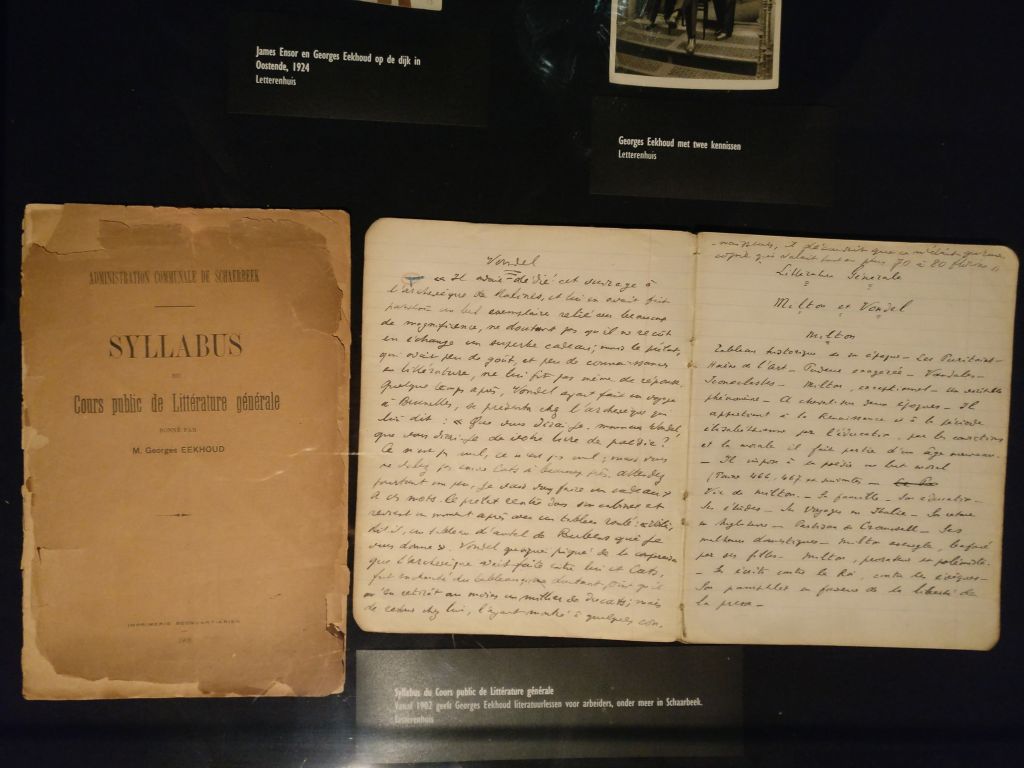 James Ensor en Georges Eekhoud op de dijk in
Oostende, 1924
Letterenhuis
Georges Eekhoud met twee kennissen
Letterenhuis
ADMINISTRATION COMMUNALE DE SCHAERBEEK
SYLLABUS
DU
Cours public de Littérature générale
DONNÉ PAR
M. Georges EEKHOUD
IMPRIMERIE
Vondel
« Il avait dédié cet ouvrage à
l'archevêque de Malines, et lui en avait fait
un bel exemplaire relié avec beaucoup
de magnificence, ne doutant pas qu'il ne reçût
en échange un superbe cadeau; mais le prélat,
qui avait peu de goût et peu de connaissances
en littérature, ne lui fit pas même de réponse.
Quelque temps après, Vondel ayant fait un voyage
à Bruxelles, se présenta chez l'archevêque qui
lui dit : « Que vous dirai-je, monsieur Vondel,
que vous dirai-je de votre livre de poésie ?
Ce n'est pas mal, ce n'est pas mal; mais vous
ne valez pas encore Cats à beaucoup près. Attendez
pourtant un peu, je vais vous faire un cadeau »
A ces mots le prélat rentre dans son cabinet et
revient un moment après avec un tableau roulé: « Voilà,
dit-il, un tableau d'autel de Rubens que je
vous donne ». Vondel quoique piqué de la comparaison
que l'archevêque avait faite entre lui et Cats,
fut enchanté du tableau
retirât au moins un millier de ducats; mais
de retour chez lui, l'ayant montré à quelques con-
-naisseurs, il
copie qui valait tout au plus 70 à 80 florins »
Littérature Générale
Milton et Vondel
Milton
Tableau historique de son époque – Les Puritains –
Haine de l'art – Pudeur exagérée – Vandales –
Iconoclastes – Milton, exceptionnel – un véritable
phénomène – A cheval sur deux époques – Il
appartient à la Renaissance et à la période
élisabéthaine par l'éducation, par les convictions
et la morale il fait partie d'un âge nouveau –
– Il impose à sa poésie un but moral
(Taine 466, 467 et suivantes –
Vie de Milton. – Sa famille – Son éducation –
Ses études – Ses voyages en Italie – Son retour
en Angleterre – Partisan de Cromwell – Ses
malheurs domestiques – Milton aveugle, bafoué
par ses filles – Milton, prosateur et polémiste –
– Ses écrits contre le Roi, contre les évêques –
Son pamphlet en faveur de la liberté de
la presse –
Syllabus du Cours public de Littérature générale
Vanaf 1902 geeft Georges Eekhoud literatuurlessen voor arbeiders, onder meer in Schaarbeek.
Letterenhuis